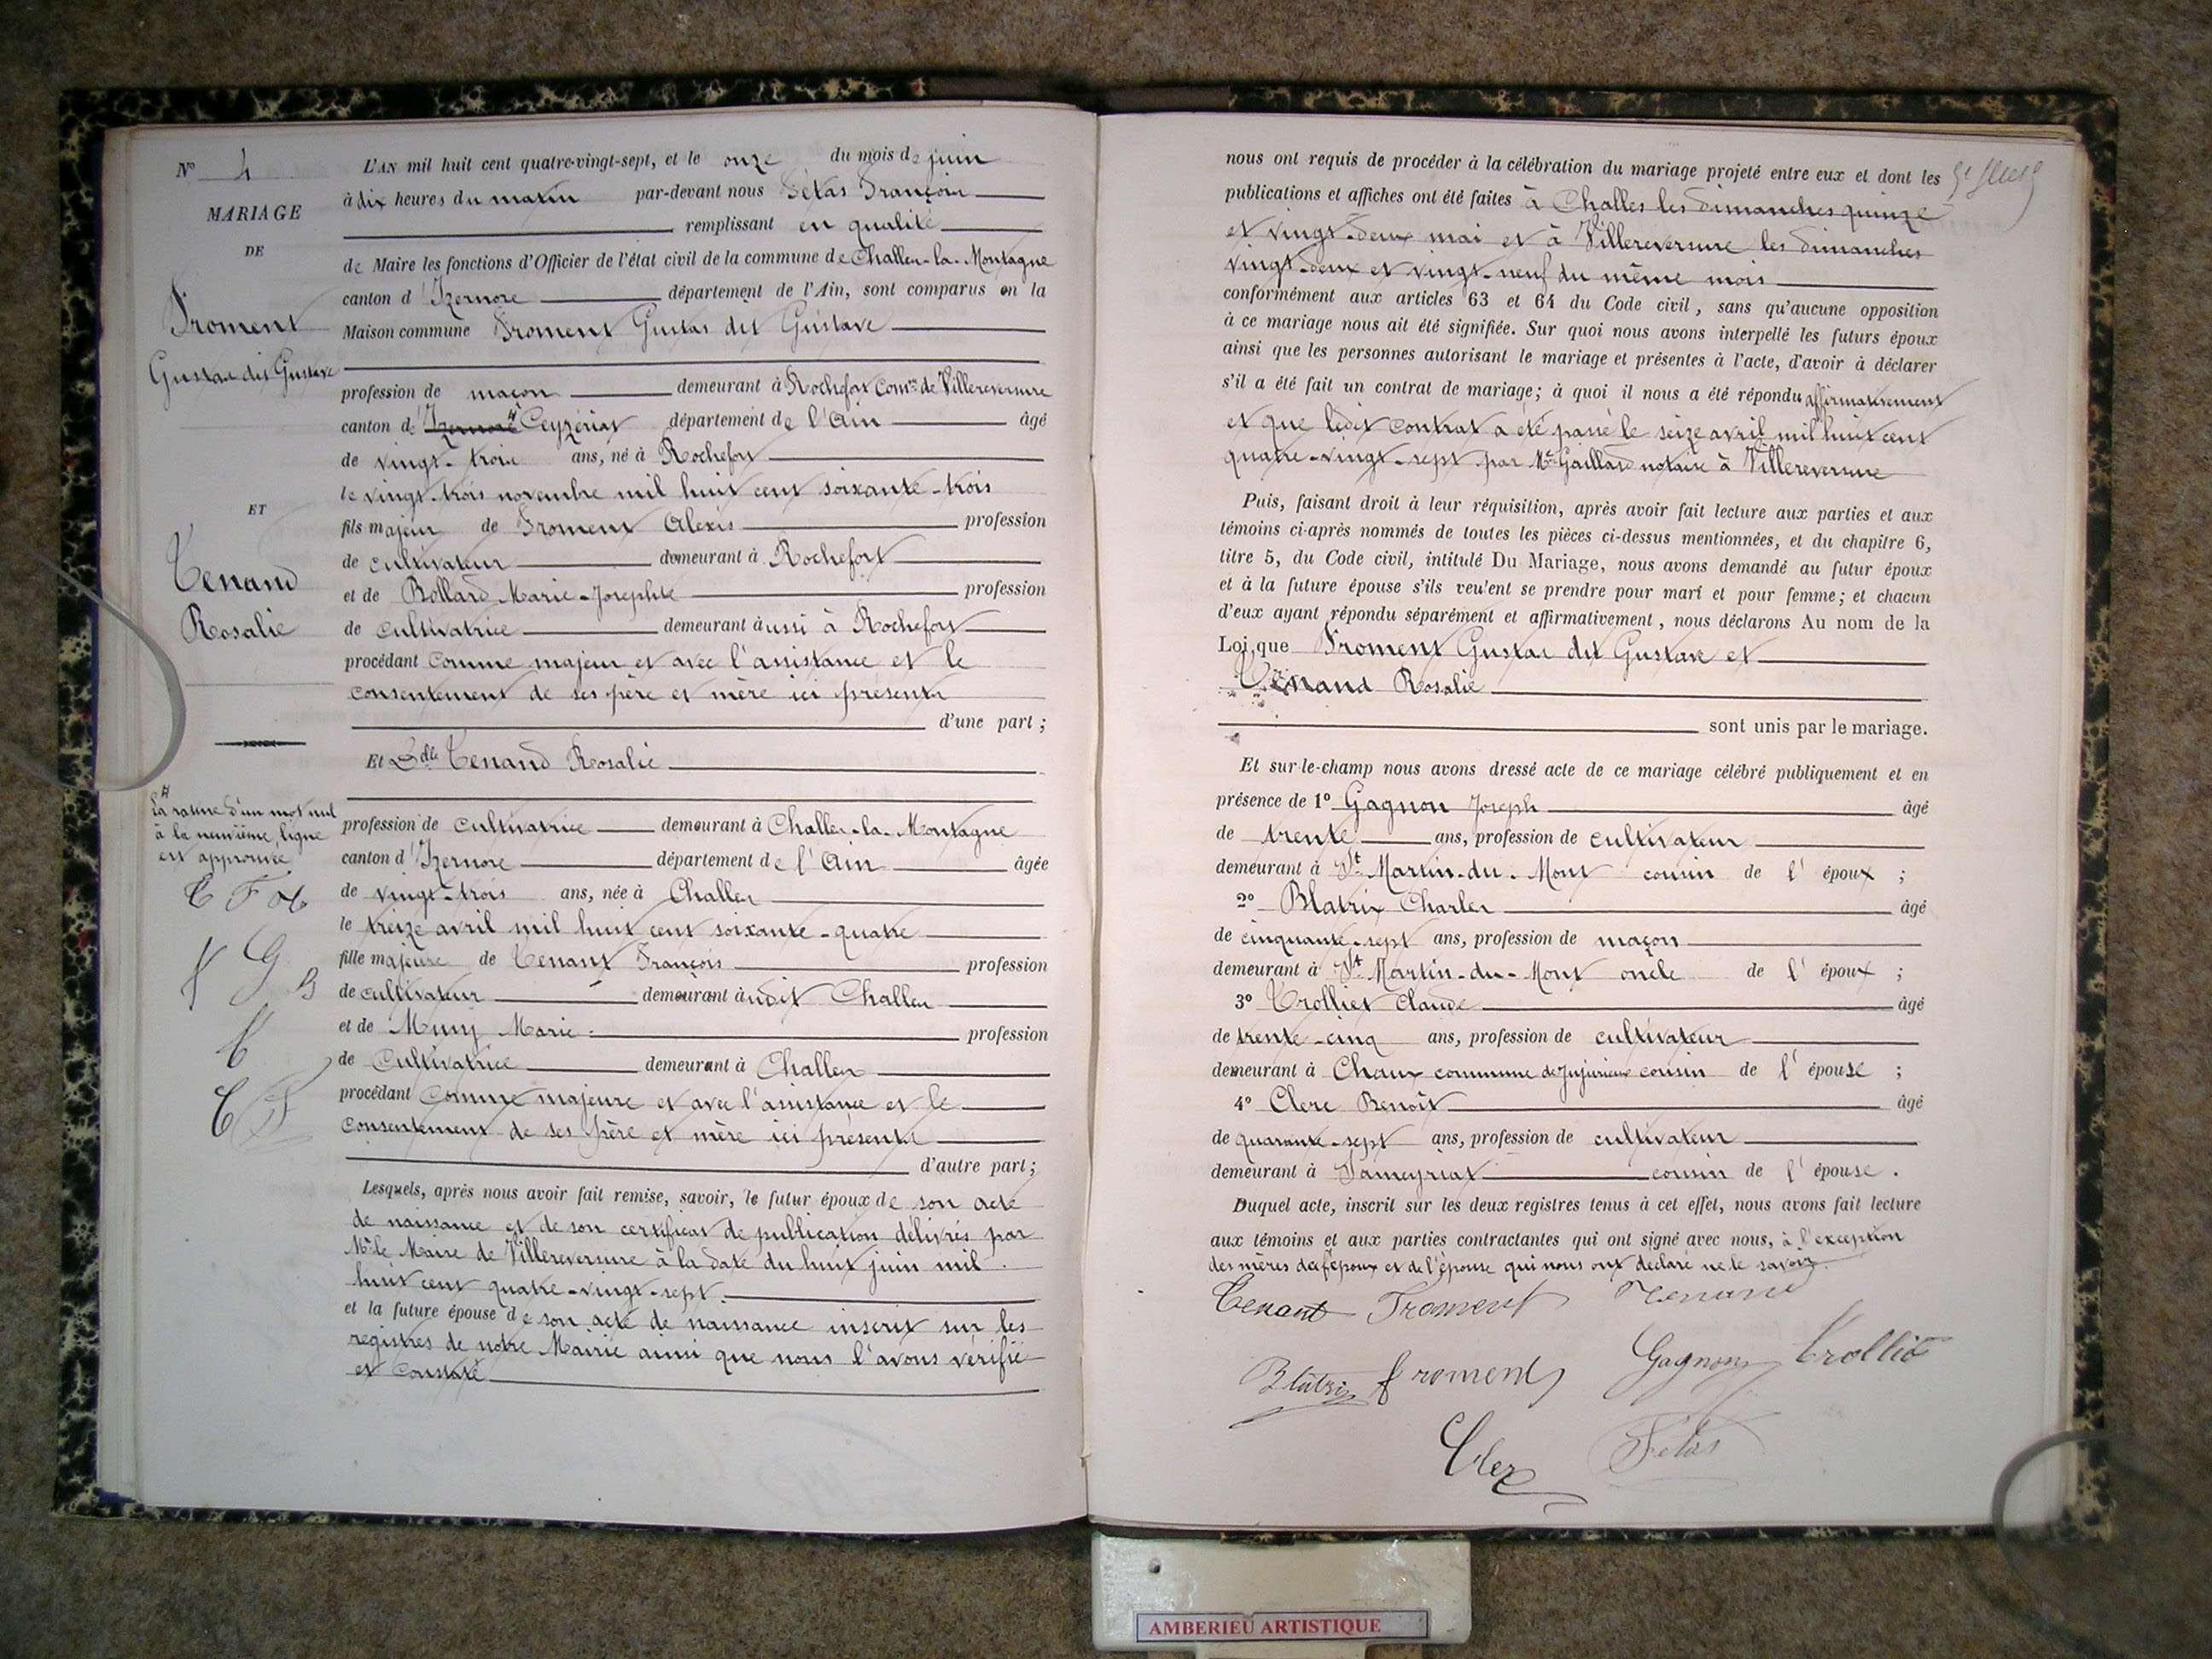 N° 4
MARIAGE
DE
Froment
Gustas dit Gustave
ET
Tenand
Rosalie
La rature d'un mot nul
à la neuvième ligne
est approuvée
T F
G B
T
C F
L'AN mil huit cent quatre-vingt-sept, et le onze du mois de juin
à dix heures du matin par-devant nous Fétas François
remplissant en qualité
de Maire les fonctions d'Officier de l'état civil de la commune de Challes-la-Montagne
canton d'Izernore département de l'Ain, sont comparus en la
Maison commune Froment Gustas dit Gustave
profession de maçon demeurant à Rochefort Comne de Villereversure
canton de Izernore Ceyzériat département de l'Ain âgé
de vingt-trois ans, né à Rochefort
le vingt-trois novembre mil huit cent soixante-trois
fils majeur de Froment Alexis profession
de cultivateur demeurant à Rochefort
et de Bollard Marie-Josephte profession
de cultivatrice demeurant aussi à Rochefort
procédant comme majeur et avec l'assistance et le
consentement de ses père et mère ici présents
d'une part ;
Et Dlle Tenand Rosalie
profession de cultivatrice demeurant à Challes-la-Montagne
canton d'Izernore département de l'Ain âgée
de vingt-trois ans, née à Challes
le treize avril mil huit cent soixante-quatre
fille majeure de Tenant François profession
de cultivateur demeurant audit Challes
et de Muny Marie profession
de Cultivatrice demeurant à Challes
procédant comme majeure et avec l'assistance et le
consentement de ses père et mère ici présents
d'autre part ;
Lesquels, après nous avoir fait remise, savoir, le futur époux de son acte
de naissance et de son certificat de publication délivrés par
Mr le Maire de Villereversure à la date du huit juin mil
huit cent quatre-vingt-sept.
et la future épouse de son acte de naissance inscrit sur les
registres de notre Mairie ainsi que nous l'avons vérifié
et constaté
nous ont requis de procéder à la célébration du mariage projeté entre eux et dont les
publications et affiches ont été faites à Challes les dimanches quinze
et vingt-deux mai et à Villereversure les dimanches
vingt-deux et vingt-neuf du même mois
conformément aux articles 63 et 64 du Code civil, sans qu'aucune opposition
à ce mariage nous ait été signifiée. Sur quoi nous avons interpellé les futurs époux
ainsi que les personnes autorisant le mariage et présentes à l'acte, d'avoir à déclarer
s'il a été fait un contrat de mariage ; à quoi il nous a été répondu affirmativement
et que ledit contrat a été passé le seize avril mil huit cent
quatre-vingt-sept par Me Gaillard notaire à Villereversure
Puis, faisant droit à leur réquisition, après avoir fait lecture aux parties et aux
témoins ci-après nommés de toutes les pièces ci-dessus mentionnées, et du chapitre 6,
titre 5, du Code civil, intitulé Du Mariage, nous avons demandé au futur époux
et à la future épouse s'ils veulent se prendre pour mari et pour femme ; et chacun
d'eux ayant répondu séparément et affirmativement, nous déclarons Au nom de la
Loi, que Froment Gustas dit Gustave et
Tenand Rosalie
sont unis par le mariage.
Et sur-le-champ nous avons dressé acte de ce mariage célébré publiquement et en
présence de 1° Gagnon Joseph âgé
de trente ans, profession de cultivateur
demeurant à St Martin-du-Mont cousin de l'époux ;
2° Blatrix Charles âgé
de cinquante-sept ans, profession de maçon
demeurant à St Martin-du-Mont oncle de l'époux ;
3° Trolliet Claude âgé
de trente-cinq ans, profession de cultivateur
demeurant à Chaux commune de Jujurieux cousin de l'épouse ;
4° Clerc Benoît âgé
de quarante-sept ans, profession de cultivateur
demeurant à Sameyriat cousin de l'épouse.
Duquel acte, inscrit sur les deux registres tenus à cet effet, nous avons fait lecture
aux témoins et aux parties contractantes qui ont signé avec nous, à l'exception
des mères de l'époux et de l'épouse qui nous ont déclaré ne le savoir.
Tenant Froment Tenand
Blatrix froment Gagnon trolliet
Clerc Fétas
AMBERIEU ARTISTIQUE